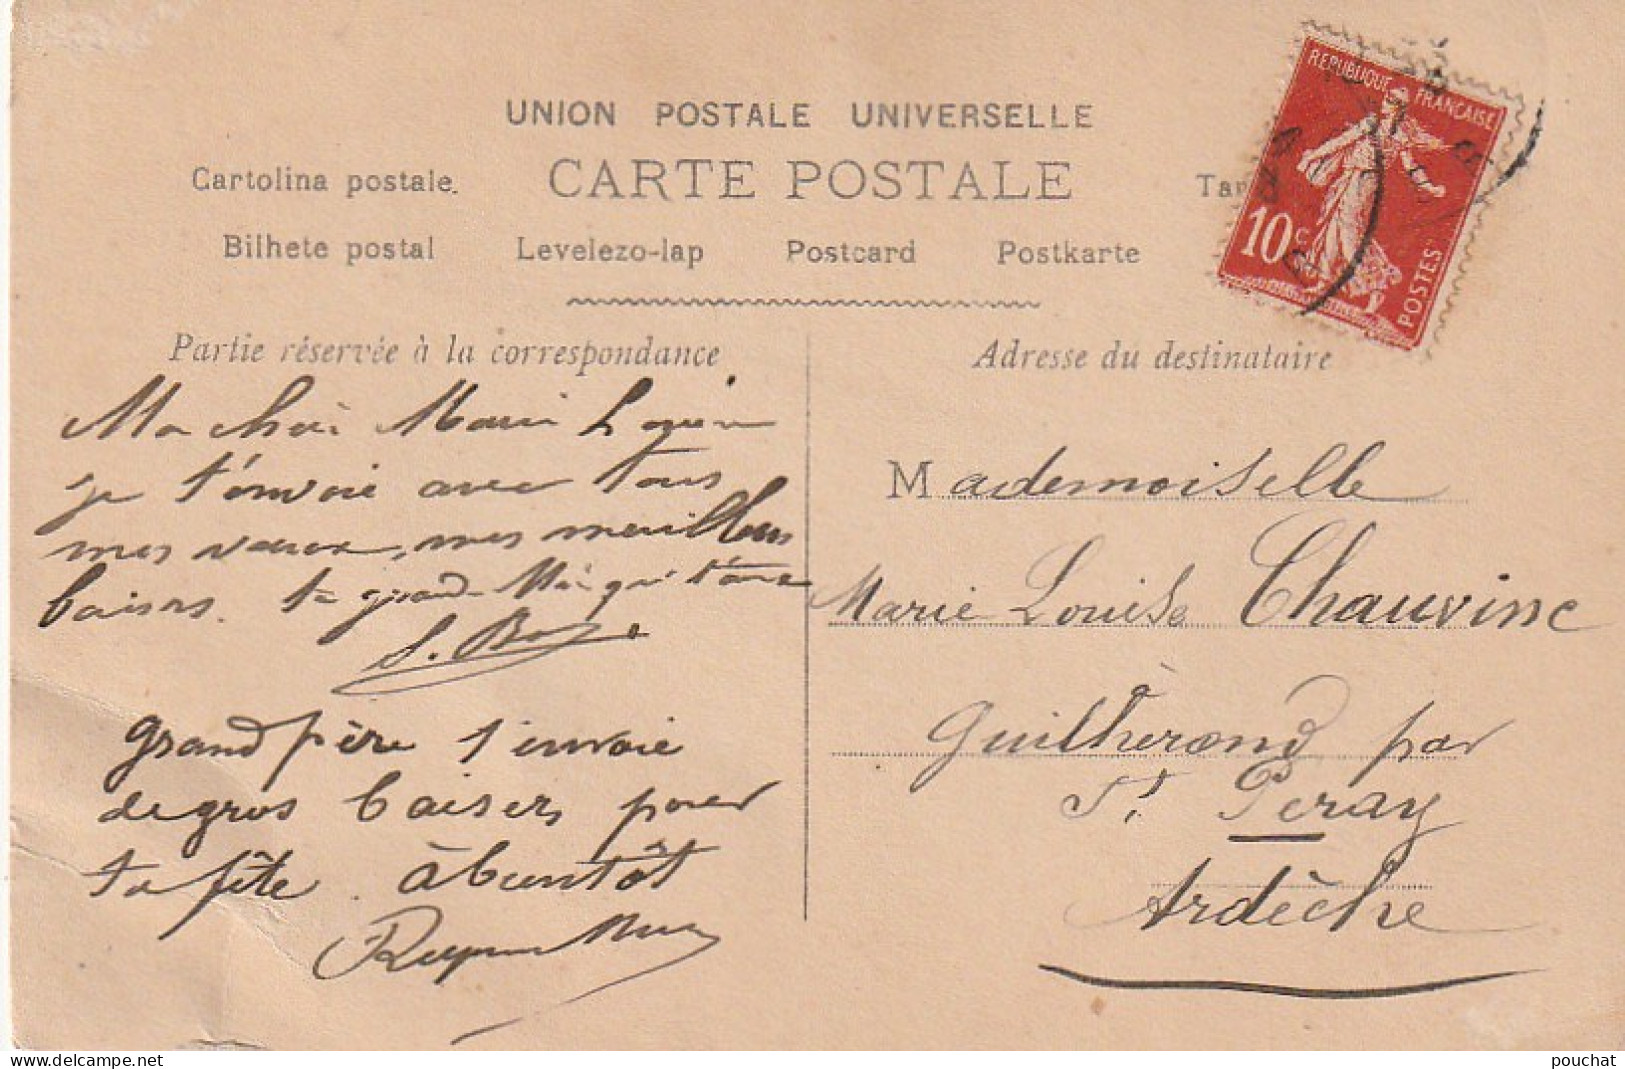 UNION POSTALE UNIVERSELLE
Cartolina postale. CARTE POSTALE Tar
Bilhete postal Levelezo-lap Postcard Postkarte
REPUBLIQUE FRANÇAISE
10c.
POSTES
Partie réservée à la correspondance
Ma chère Marie Louise
je t'envoie avec tous
mes vœux, mes meilleurs
baisers. ta grand Mère qui t'aime
grand père t'envoie
de gros baisers pour
ta fête. à bientôt
Adresse du destinataire
Mademoiselle
Marie Louise Chauvine
à
Guilherand par
St. Peray
Ardèche
pouchat
www.delcampe.net